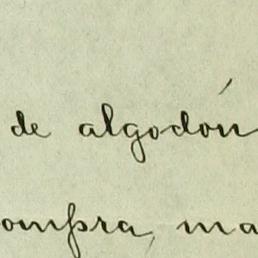 de algodón
ompra, ma